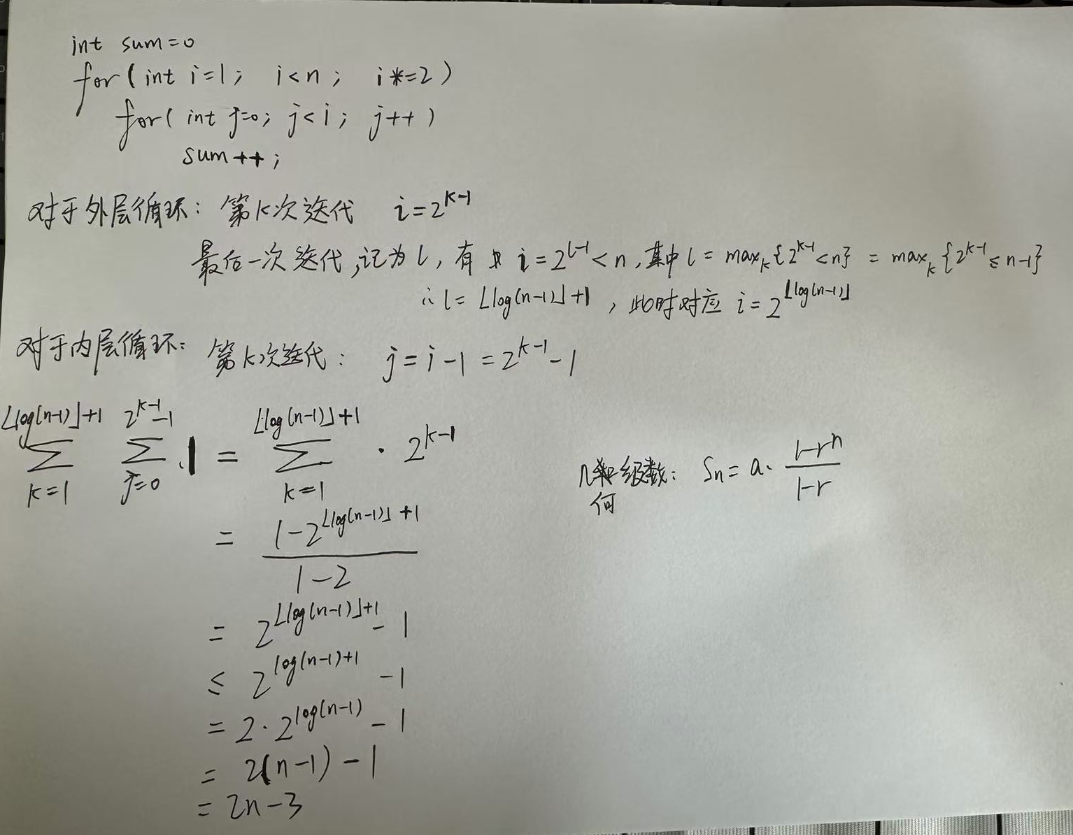 int sum=0
for(int i=1; i<n; i*=2)
for(int j=0; j<i; j++)
sum++;
对于外层循环: 第k次迭代 i=2^{k-1}
最后一次迭代,记为l, 有 i=2^{l-1}<n, 其中l=max_k{2^{k-1}<n}=max_k{2^{k-1}≤n-1}
∴l=⌊log(n-1)⌋+1, 此时对应 i=2^{⌊log(n-1)⌋}
对于内层循环: 第k次迭代: j=i-1=2^{k-1}-1
∑_{k=1}^{⌊log(n-1)⌋+1} ∑_{j=0}^{2^{k-1}-1} 1 = ∑_{k=1}^{⌊log(n-1)⌋+1} · 2^{k-1}
几何级数: Sn=a·\frac{1-r^n}{1-r}
= \frac{1-2^{⌊log(n-1)⌋+1}}{1-2}
= 2^{⌊log(n-1)⌋+1}-1
≤ 2^{log(n-1)+1}-1
= 2·2^{log(n-1)}-1
= 2(n-1)-1
= 2n-3